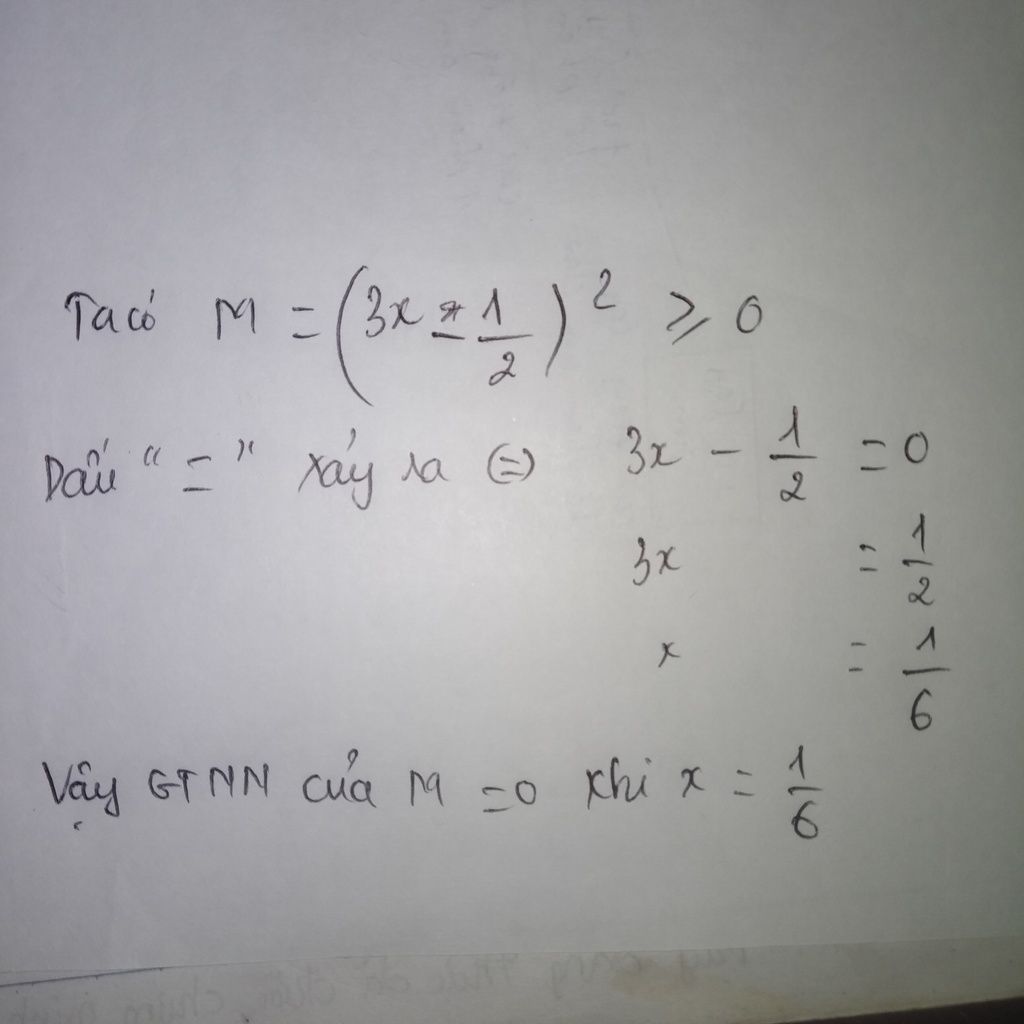 Ta có M = (3x - 1/2)² ≥ 0
Dấu "=" xảy ra (=) 3x - 1/2 = 0
3x = 1/2
x = 1/6
Vậy GTNN của M = 0 khi x = 1/6